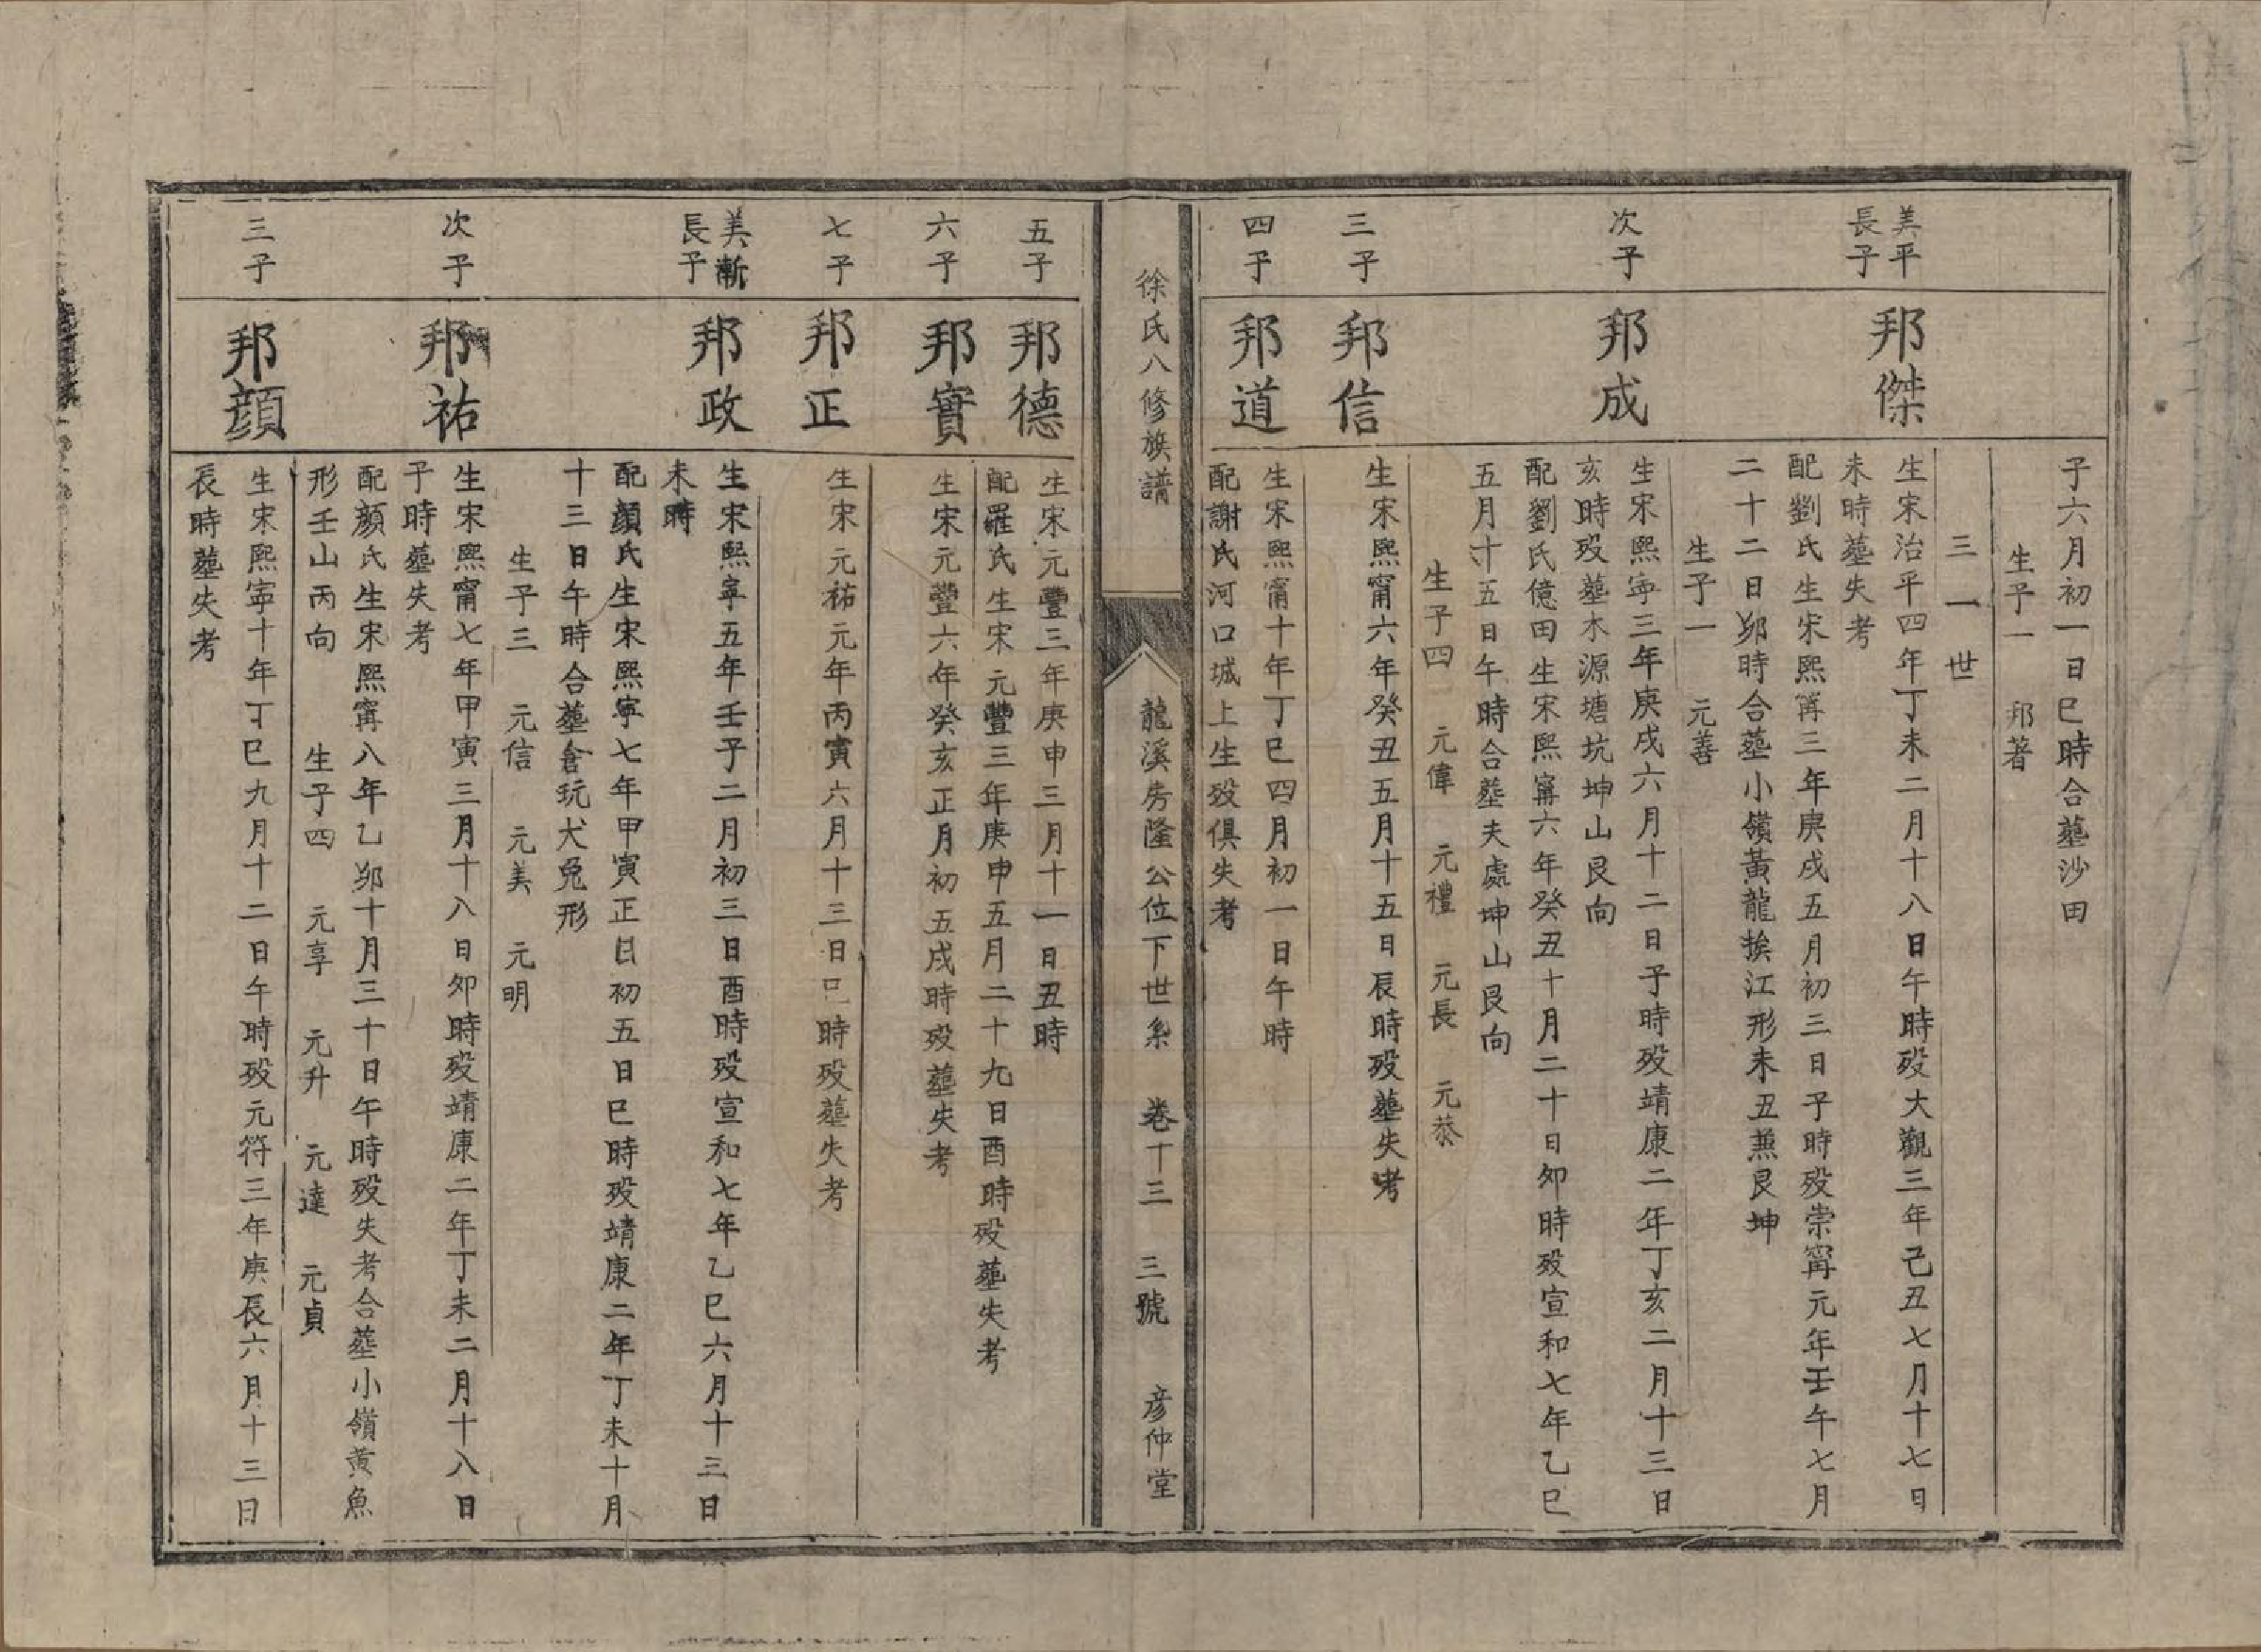 子六月初一日巳時合塟沙田
生子一 邦著
三一世
美平
長子
邦傑
生宋治平四年丁未二月十八日午時殁大觀三年己丑七月十七日
未時塟失考
配劉氏生宋熙寗三年庚戌五月初三日子時殁崇寗元年壬午七月
二十二日夘時合塟小嶺黃龍挨江形未丑兼艮坤
生子一 元善
次子
邦成
生宋熙寜三年庚戌六月十二日子時殁靖康二年丁亥二月十三日
亥時殁塟木源塘坑坤山艮向
配劉氏億田生宋熙寗六年癸丑十月二十日卯時殁宣和七年乙巳
五月十五日午時合塟夫處坤山艮向
生子四 元偉 元禮 元長 元恭
三子
邦信
生宋熙甯六年癸丑五月十五日辰時殁塟失考
四子
邦道
生宋熙甯十年丁巳四月初一日午時
配謝氏河口城上生殁俱失考
徐氏八修族譜
龍溪房隆公位下世系 卷十三 三號 彦仲堂
五子
邦德
生宋元豐三年庚申三月十一日丑時
配羅氏生宋元豐三年庚申五月二十九日酉時殁塟失考
六子
邦實
生宋元豐六年癸亥正月初五戌時殁塟失考
七子
邦正
生宋元祐元年丙寅六月十三日巳時殁塟失考
美漸
長子
邦政
生宋熙寧五年壬子二月初三日酉時殁宣和七年乙巳六月十三日
未時
配顏氏生宋熙寧七年甲寅正日初五日巳時殁靖康二年丁未十月
十三日午時合塟倉玩犬兔形
生子三 元信 元美 元明
次子
邦祐
生宋熙甯七年甲寅三月十八日卯時殁靖康二年丁未二月十八日
子時塟失考
配顏氏生宋熙寗八年乙夘十月三十日午時殁失考合塟小嶺黃魚
形壬山丙向 生子四 元享 元升 元達 元貞
三子
邦顏
生宋熙寜十年丁巳九月十二日午時殁元符三年庚辰六月十三日
辰時塟失考